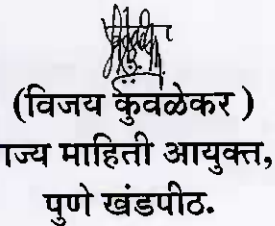 (विजय कुंवळेकर )
ाज्य माहिती आयुक्त,
पुणे खंडपीठ.